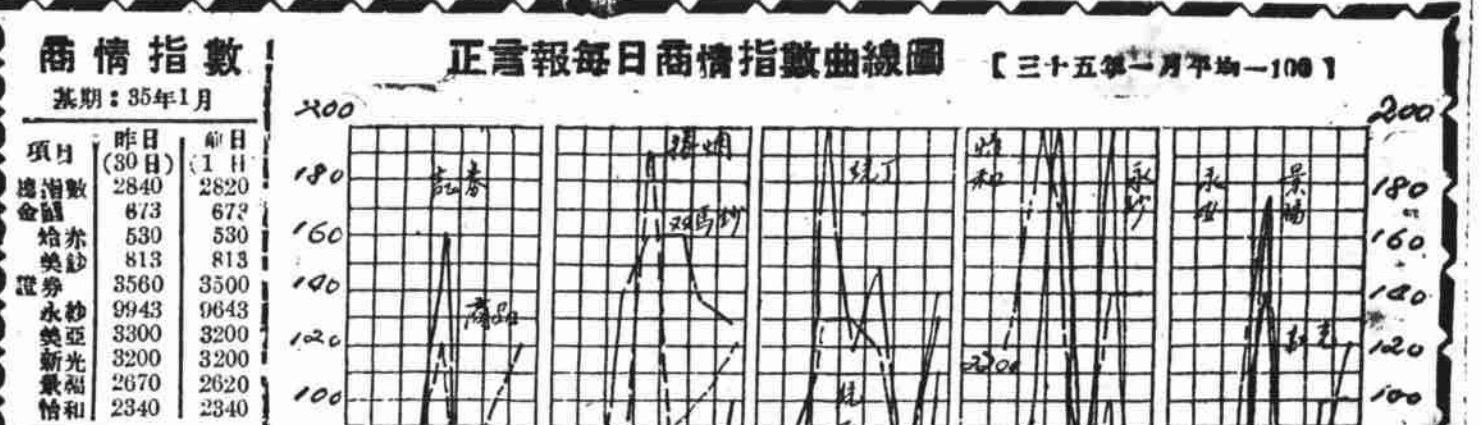 商情指數
基期：35年1月
項目 昨日(30日) 前日(1日
總指數 2840 2820
金鈔 673 673
烚赤 530 530
美鈔 813 813
證券 3560 3500
永紗 9943 9643
美亞 3300 3200
新光 3200 3200
景福 2670 2620
怡和 2340 2340
正言報每日商情指數曲線圖 【三十五年一月平均—100】
200
180
160
140
120
100
証券
商品
双馬紗
統
怡和
永紗
2200
景福
新光
200
180
160
140
120
100